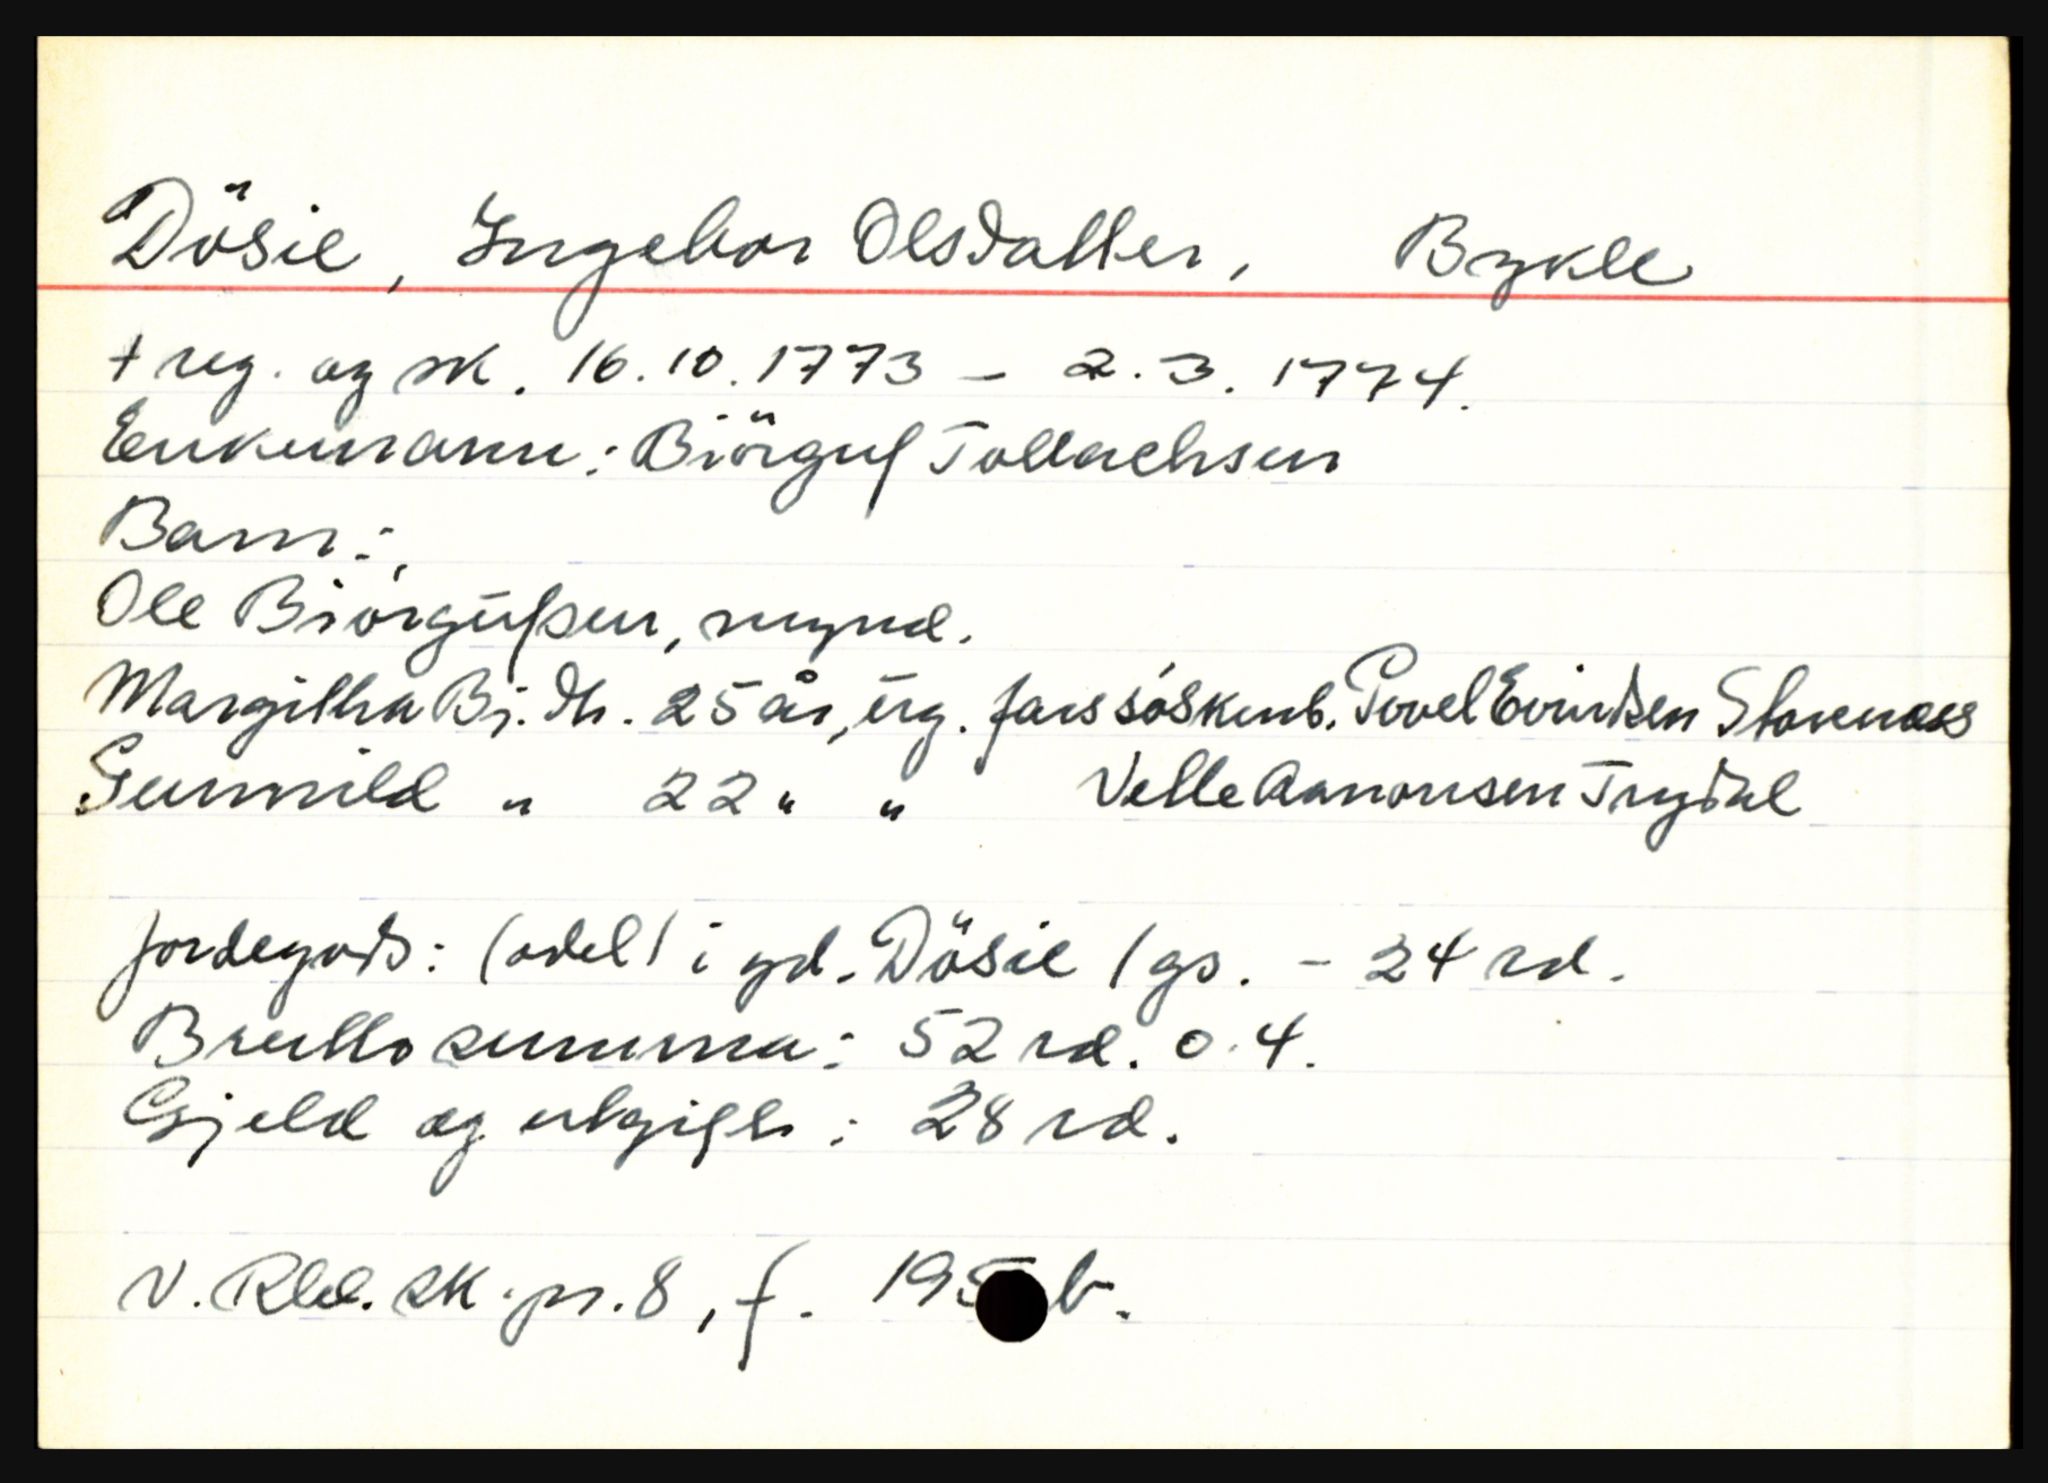 Dösie, Ingebor Olsdatter, Bykle
+ reg. og sk. 16.10.1773 – 2.3.1774.
Enkemann: Biörguf Tollachsen
Barn:
Ole Biörgufsen, mynd.
Margitha Bj. dtr. 25 år, ug. farssöskenb. Povel Evindsen Stavenæss
Gunnild " 22 " " Velle Aanonsen Trydal
Jordegods: (odel) i gd. Dösie 1 gs. - 24 rd.
Brutto summa: 52 rd. 0.4.
Gjeld og utgifter: 28 rd.
V. Rbl. sk. pr. 8, f. 195 b.